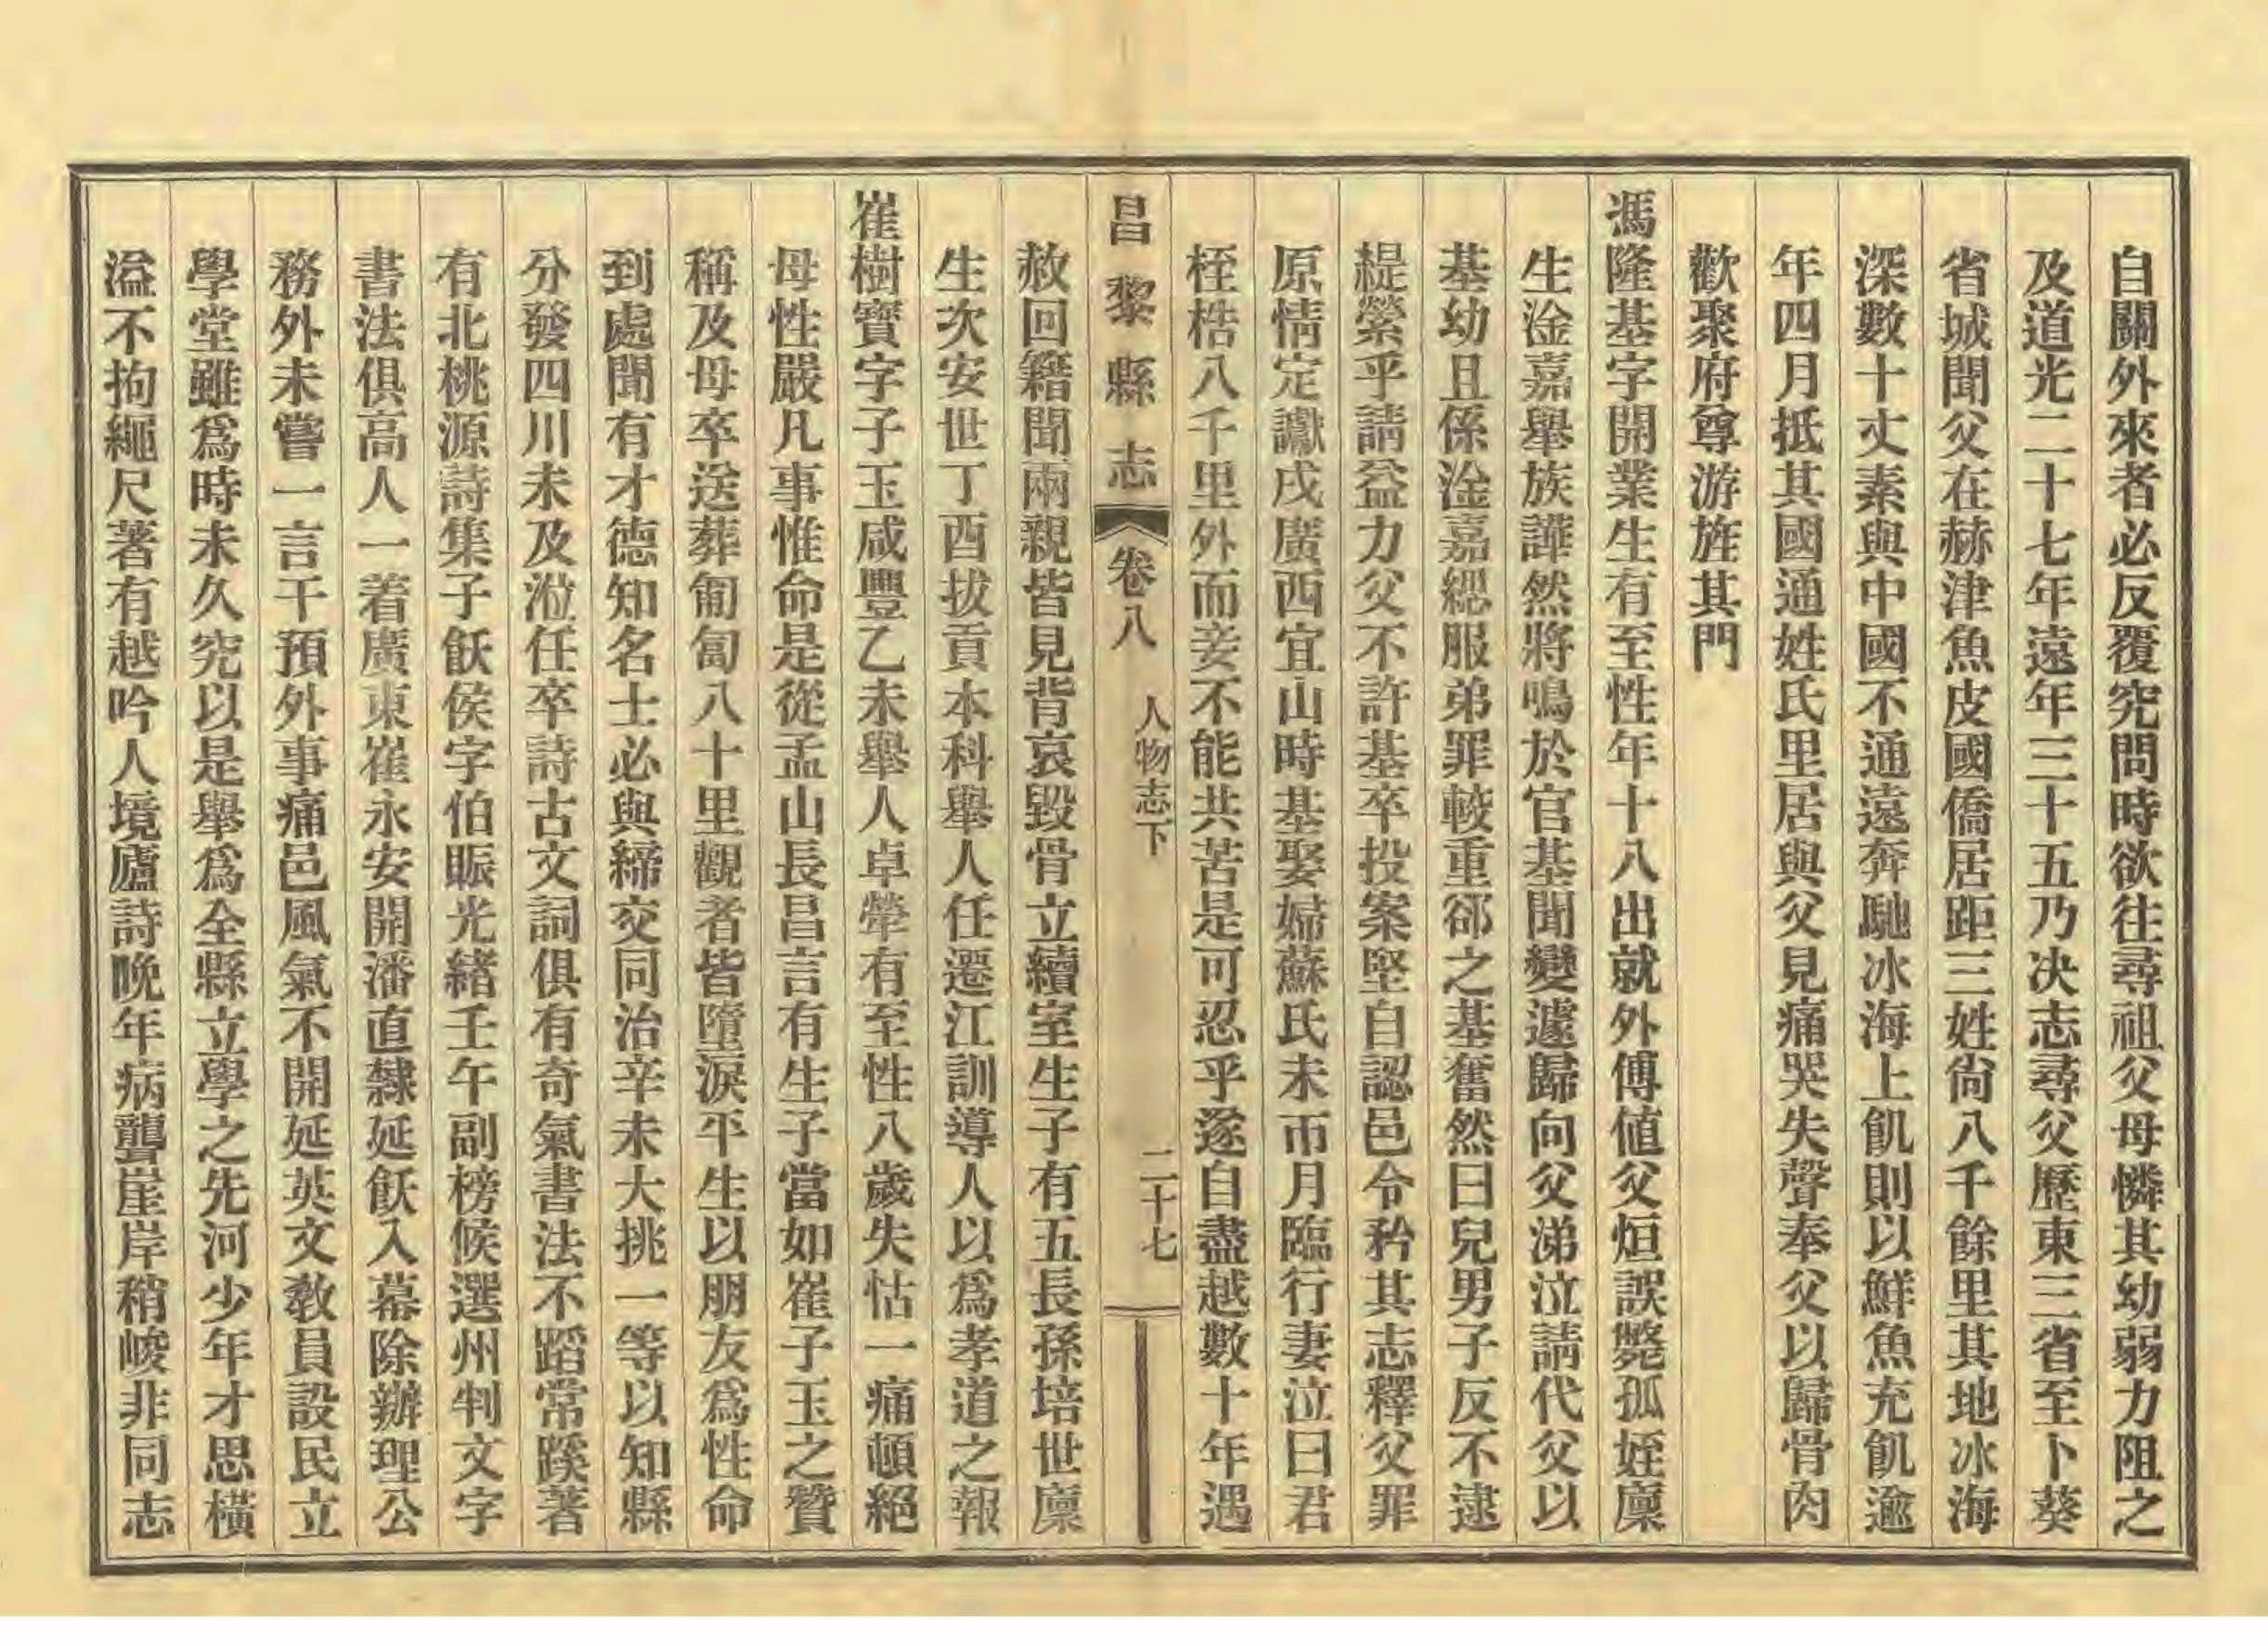 自關外來者必反覆究問時欲往尋祖父母憐其幼弱力阻之
及道光二十七年遠年三十五乃决志尋父歷東三省至卜葵
省城聞父在赫津魚皮國僑居距三姓尙八千餘里其地冰海
深數十丈素與中國不通遠奔馳冰海上飢則以鮮魚充飢逾
年四月抵其國通姓氏里居與父見痛哭失聲奉父以歸骨肉
歡聚府尊游旌其門
馮隆基字開業生有至性年十八出就外傅値父烜誤斃孤姪廩
生淦嘉舉族譁然將鳴於官基聞變遽歸向父涕泣請代父以
基幼且係淦嘉緦服弟罪較重郤之基奮然曰兒男子反不逮
緹縈乎請益力父不許基卒投案堅自認邑令矜其志釋父罪
原情定讞戍廣西宜山時基娶婦蘇氏未帀月臨行妻泣曰君
桎梏八千里外而妾不能共苦是可忍乎遂自盡越數十年遇
昌黎縣志 卷八 人物志下 二十七
赦回籍聞兩親皆見背哀毀骨立續室生子有五長孫培世廩
生次安世丁酉拔貢本科舉人任遷江訓導人以爲孝道之報
崔樹寶字子玉咸豐乙未舉人卓犖有至性八歲失怙一痛頓絕
母性嚴凡事惟命是從孟山長昌言有生子當如崔子玉之贊
稱及母卒送葬匍匐八十里觀者皆墮淚平生以朋友爲性命
到處聞有才德知名士必與締交同治辛未大挑一等以知縣
分發四川未及涖任卒詩古文詞俱有奇氣書法不蹈常蹊著
有北桃源詩集子飫侯字伯賑光緒壬午副榜候選州判文字
書法俱高人一着廣東崔永安開潘直隸延飫入幕除辦理公
務外未嘗一言干預外事痛邑風氣不開延英文敎員設民立
學堂雖爲時未久究以是舉爲全縣立學之先河少年才思橫
溢不拘繩尺著有越吟人境廬詩晚年病聾崖岸稍峻非同志